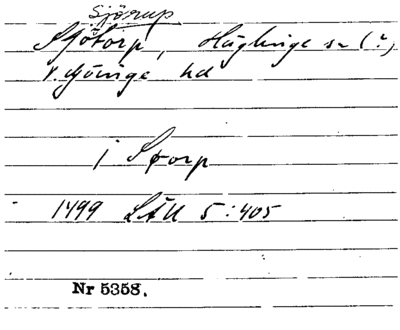 Sjörup
Sjötorp, Häglinge sn (?)
V. Göinge hd
i Storp
1499 LÄU 5:405
Nr 5358.